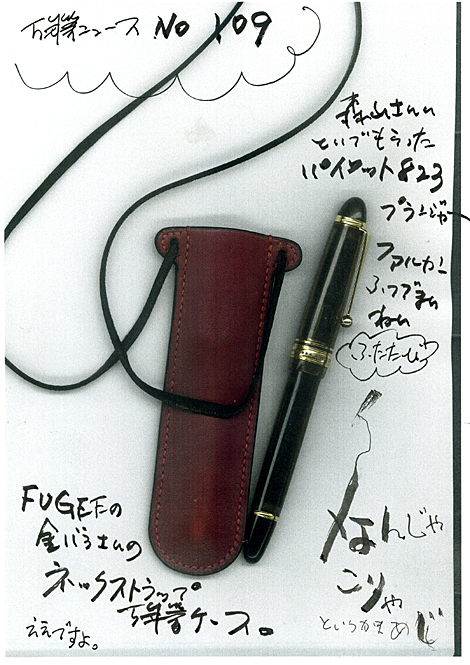 万年筆ニュース No 109
森山さんに
といでもらった
パイロット823
プランジャー
ファルカン
ふつうでない
ねい
ふたたび
なんじゃ
こりゃ
というかきあじ
FUGEEの
金バラさんの
ネックストラップ
万年筆ケース。
ええですよ。